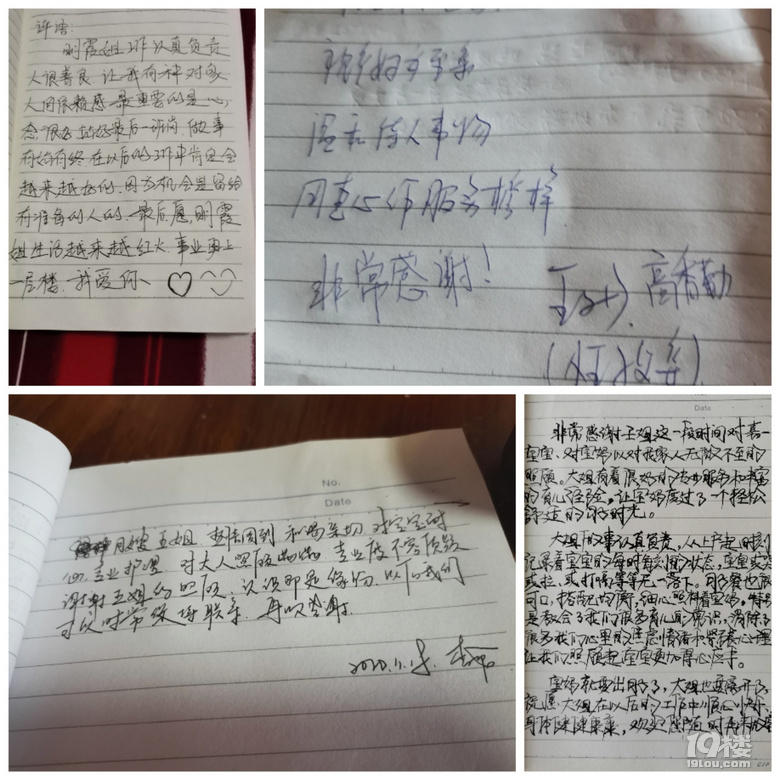 评语:
明霞姐工作认真负责
人很善良.让我有种对家
人间依赖感.最重要的是心
态很好.站好最后一班岗.做事
有始有终.在以后的工作中肯定会
越来越好的.因为机会是留给
有准备的人的.最后愿.明霞
姐生活越来越红火.事业更上
一层楼.我爱你、♡
温和待人事物
用真心作服务榜样
非常感谢！
高香勤
No.
Date
月嫂王姐 和蔼亲切 对宝宝耐
心专业护理 对大人照顾 专业度不容质疑
谢谢王姐的照顾 认识即是缘份 以后我们
可以时常 联系 再次感谢
2020.11.15
Date
非常感谢王姐这一段时间对喜
宝宝、对宝妈以对我家人无微不至的
照顾。大姐有着很好的专业服务和丰富
的育儿经验，让宝妈度过了一个轻松
舒适的 时光。
大姐做事认真负责，从上户起时刻
记录着宝宝的每时每刻的状态，宝宝或
或拉，或打嗝等等无一落下。月子餐也很
可口，搭配均衡，细心照料着宝妈，特别
是教会了我们很多育儿的常识，消除了
很多我们心里的焦虑情绪和紧张心理
让我们照顾起宝宝更加得心应手。
宝妈就要出月了，大姐也要离开了
祝愿大姐在以后的工作中顺心顺利，
身体健健康康，欢迎 随时再来
19楼
19lou.com